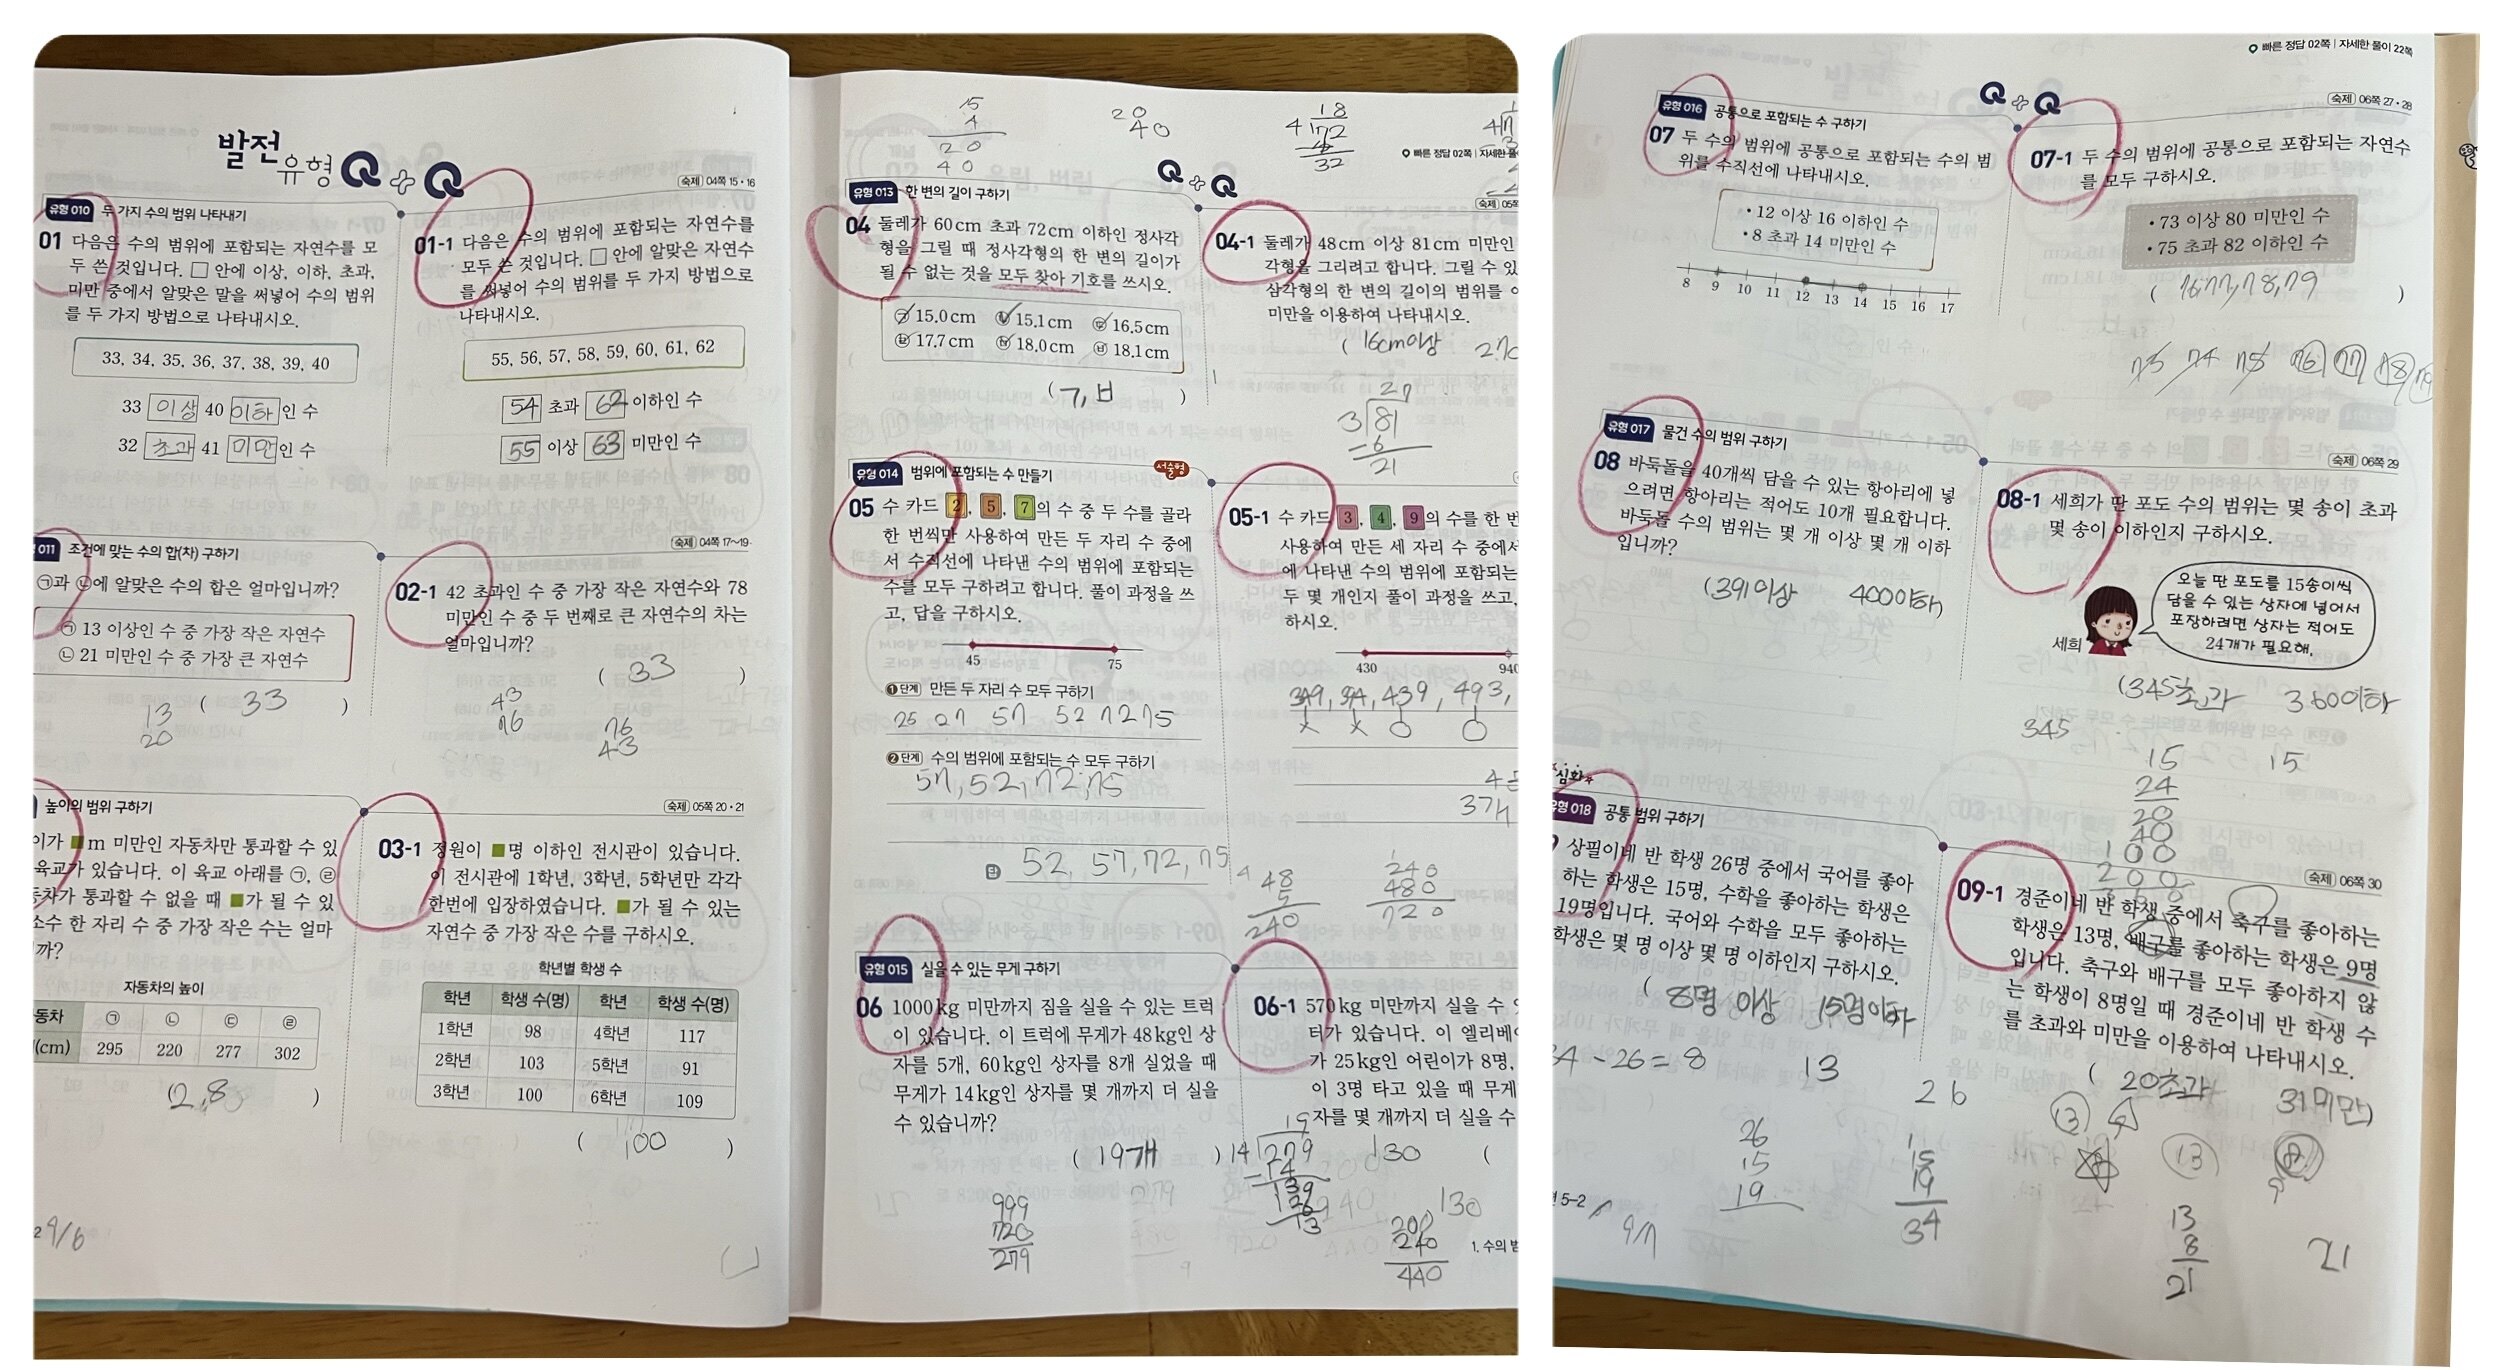 발전
유형 Q + Q
숙제 04쪽 15·16
유형 010 두 가지 수의 범위 나타내기
01 다음은 수의 범위에 포함되는 자연수를 모
두 쓴 것입니다. □ 안에 이상, 이하, 초과,
미만 중에서 알맞은 말을 써넣어 수의 범위
를 두 가지 방법으로 나타내시오.
33, 34, 35, 36, 37, 38, 39, 40
33 이상 40 이하 인 수
32 초과 41 미만 인 수
01-1 다음은 수의 범위에 포함되는 자연수를
모두 쓴 것입니다. □ 안에 알맞은 자연수
를 써넣어 수의 범위를 두 가지 방법으로
나타내시오.
55, 56, 57, 58, 59, 60, 61, 62
54 초과 62 이하인 수
55 이상 63 미만인 수
011 조건에 맞는 수의 합(차) 구하기
숙제 04쪽 17~19
㉠과 ㉡에 알맞은 수의 합은 얼마입니까?
㉠ 13 이상인 수 중 가장 작은 자연수
㉡ 21 미만인 수 중 가장 큰 자연수
( 33 )
13
20
02-1 42 초과인 수 중 가장 작은 자연수와 78
미만인 수 중 두 번째로 큰 자연수의 차는
얼마입니까?
( 33 )
43
76
76
43
높이의 범위 구하기
숙제 05쪽 20·21
이가 ■ m 미만인 자동차만 통과할 수 있
육교가 있습니다. 이 육교 아래를 ㉠, ㉣
동차가 통과할 수 없을 때 ■가 될 수 있
소수 한 자리 수 중 가장 작은 수는 얼마
까?
자동차의 높이
동차 ㉠ ㉡ ㉢ ㉣
(cm) 295 220 277 302
( 2.8 )
9/6
03-1 정원이 ■명 이하인 전시관이 있습니다.
이 전시관에 1학년, 3학년, 5학년만 각각
한번에 입장하였습니다. ■가 될 수 있는
자연수 중 가장 작은 수를 구하시오.
학년별 학생 수
학년 학생 수(명) 학년 학생 수(명)
1학년 98 4학년 117
2학년 103 5학년 91
3학년 100 6학년 109
( 100 )
15
4
20
40
20
40
18
4 72
32
빠른 정답 02쪽 | 자세한 풀
Q + Q
숙제 05쪽
유형 013 한 변의 길이 구하기
04 둘레가 60 cm 초과 72 cm 이하인 정사각
형을 그릴 때 정사각형의 한 변의 길이가
될 수 없는 것을 모두 찾아 기호를 쓰시오.
㉠ 15.0 cm ㉡ 15.1 cm ㉢ 16.5 cm
㉣ 17.7 cm ㉤ 18.0 cm ㉥ 18.1 cm
( ㄱ, ㅂ )
04-1 둘레가 48 cm 이상 81 cm 미만인
각형을 그리려고 합니다. 그릴 수 있
삼각형의 한 변의 길이의 범위를 이
미만을 이용하여 나타내시오.
( 16cm이상 27c
27
3 81
6
21
유형 014 범위에 포함되는 수 만들기
서술형
05 수 카드 2, 5, 7의 수 중 두 수를 골라
한 번씩만 사용하여 만든 두 자리 수 중에
서 수직선에 나타낸 수의 범위에 포함되는
수를 모두 구하려고 합니다. 풀이 과정을 쓰
고, 답을 구하시오.
45 75
1단계 만든 두 자리 수 모두 구하기
25 27 57 52 72 75
2단계 수의 범위에 포함되는 수 모두 구하기
57, 52, 72, 75
답 52, 57, 72, 75
05-1 수 카드 3, 4, 9의 수를 한 번
사용하여 만든 세 자리 수 중에서
에 나타낸 수의 범위에 포함되는
두 몇 개인지 풀이 과정을 쓰고,
하시오.
430 940
349, 394, 439, 493,
X X O O
3개
48
5
240
240
480
720
유형 015 실을 수 있는 무게 구하기
06 1000 kg 미만까지 짐을 실을 수 있는 트럭
이 있습니다. 이 트럭에 무게가 48 kg인 상
자를 5개, 60 kg인 상자를 8개 실었을 때
무게가 14 kg인 상자를 몇 개까지 더 실을
수 있습니까?
( 19개 )
999
720
279
19
14 279
14
139
126
13
06-1 570 kg 미만까지 실을 수 있
터가 있습니다. 이 엘리베이
가 25 kg인 어린이가 8명,
이 3명 타고 있을 때 무게
자를 몇 개까지 더 실을 수
130
130
200
240
440
1. 수의 범
빠른 정답 02쪽 | 자세한 풀이 22쪽
Q + Q
숙제 06쪽 27·28
유형 016 공통으로 포함되는 수 구하기
07 두 수의 범위에 공통으로 포함되는 수의 범
위를 수직선에 나타내시오.
• 12 이상 16 이하인 수
• 8 초과 14 미만인 수
8 9 10 11 12 13 14 15 16 17
07-1 두 수의 범위에 공통으로 포함되는 자연수
를 모두 구하시오.
• 73 이상 80 미만인 수
• 75 초과 82 이하인 수
( 76, 77, 78, 79 )
73 74 75 76 77 78 79
유형 017 물건 수의 범위 구하기
숙제 06쪽 29
08 바둑돌을 40개씩 담을 수 있는 항아리에 넣
으려면 항아리는 적어도 10개 필요합니다.
바둑돌 수의 범위는 몇 개 이상 몇 개 이하
입니까?
(391이상 400이하)
08-1 세희가 딴 포도 수의 범위는 몇 송이 초과
몇 송이 이하인지 구하시오.
오늘 딴 포도를 15송이씩
담을 수 있는 상자에 넣어서
포장하려면 상자는 적어도
24개가 필요해.
세희
(345초과 360이하
345
15
15
24
20
40
100
200
심화
유형 018 공통 범위 구하기
숙제 06쪽 30
상필이네 반 학생 26명 중에서 국어를 좋아
하는 학생은 15명, 수학을 좋아하는 학생은
19명입니다. 국어와 수학을 모두 좋아하는
학생은 몇 명 이상 몇 명 이하인지 구하시오.
( 8명 이상 15명이하
34 - 26 = 8
13
26
26
15
19
15
19
34
5-2
9/7
09-1 경준이네 반 학생 중에서 축구를 좋아하는
학생은 13명, 배구를 좋아하는 학생은 9명
입니다. 축구와 배구를 모두 좋아하지 않
는 학생이 8명일 때 경준이네 반 학생 수
를 초과와 미만을 이용하여 나타내시오.
( 20초과 31미만)
13
13
8
21
21